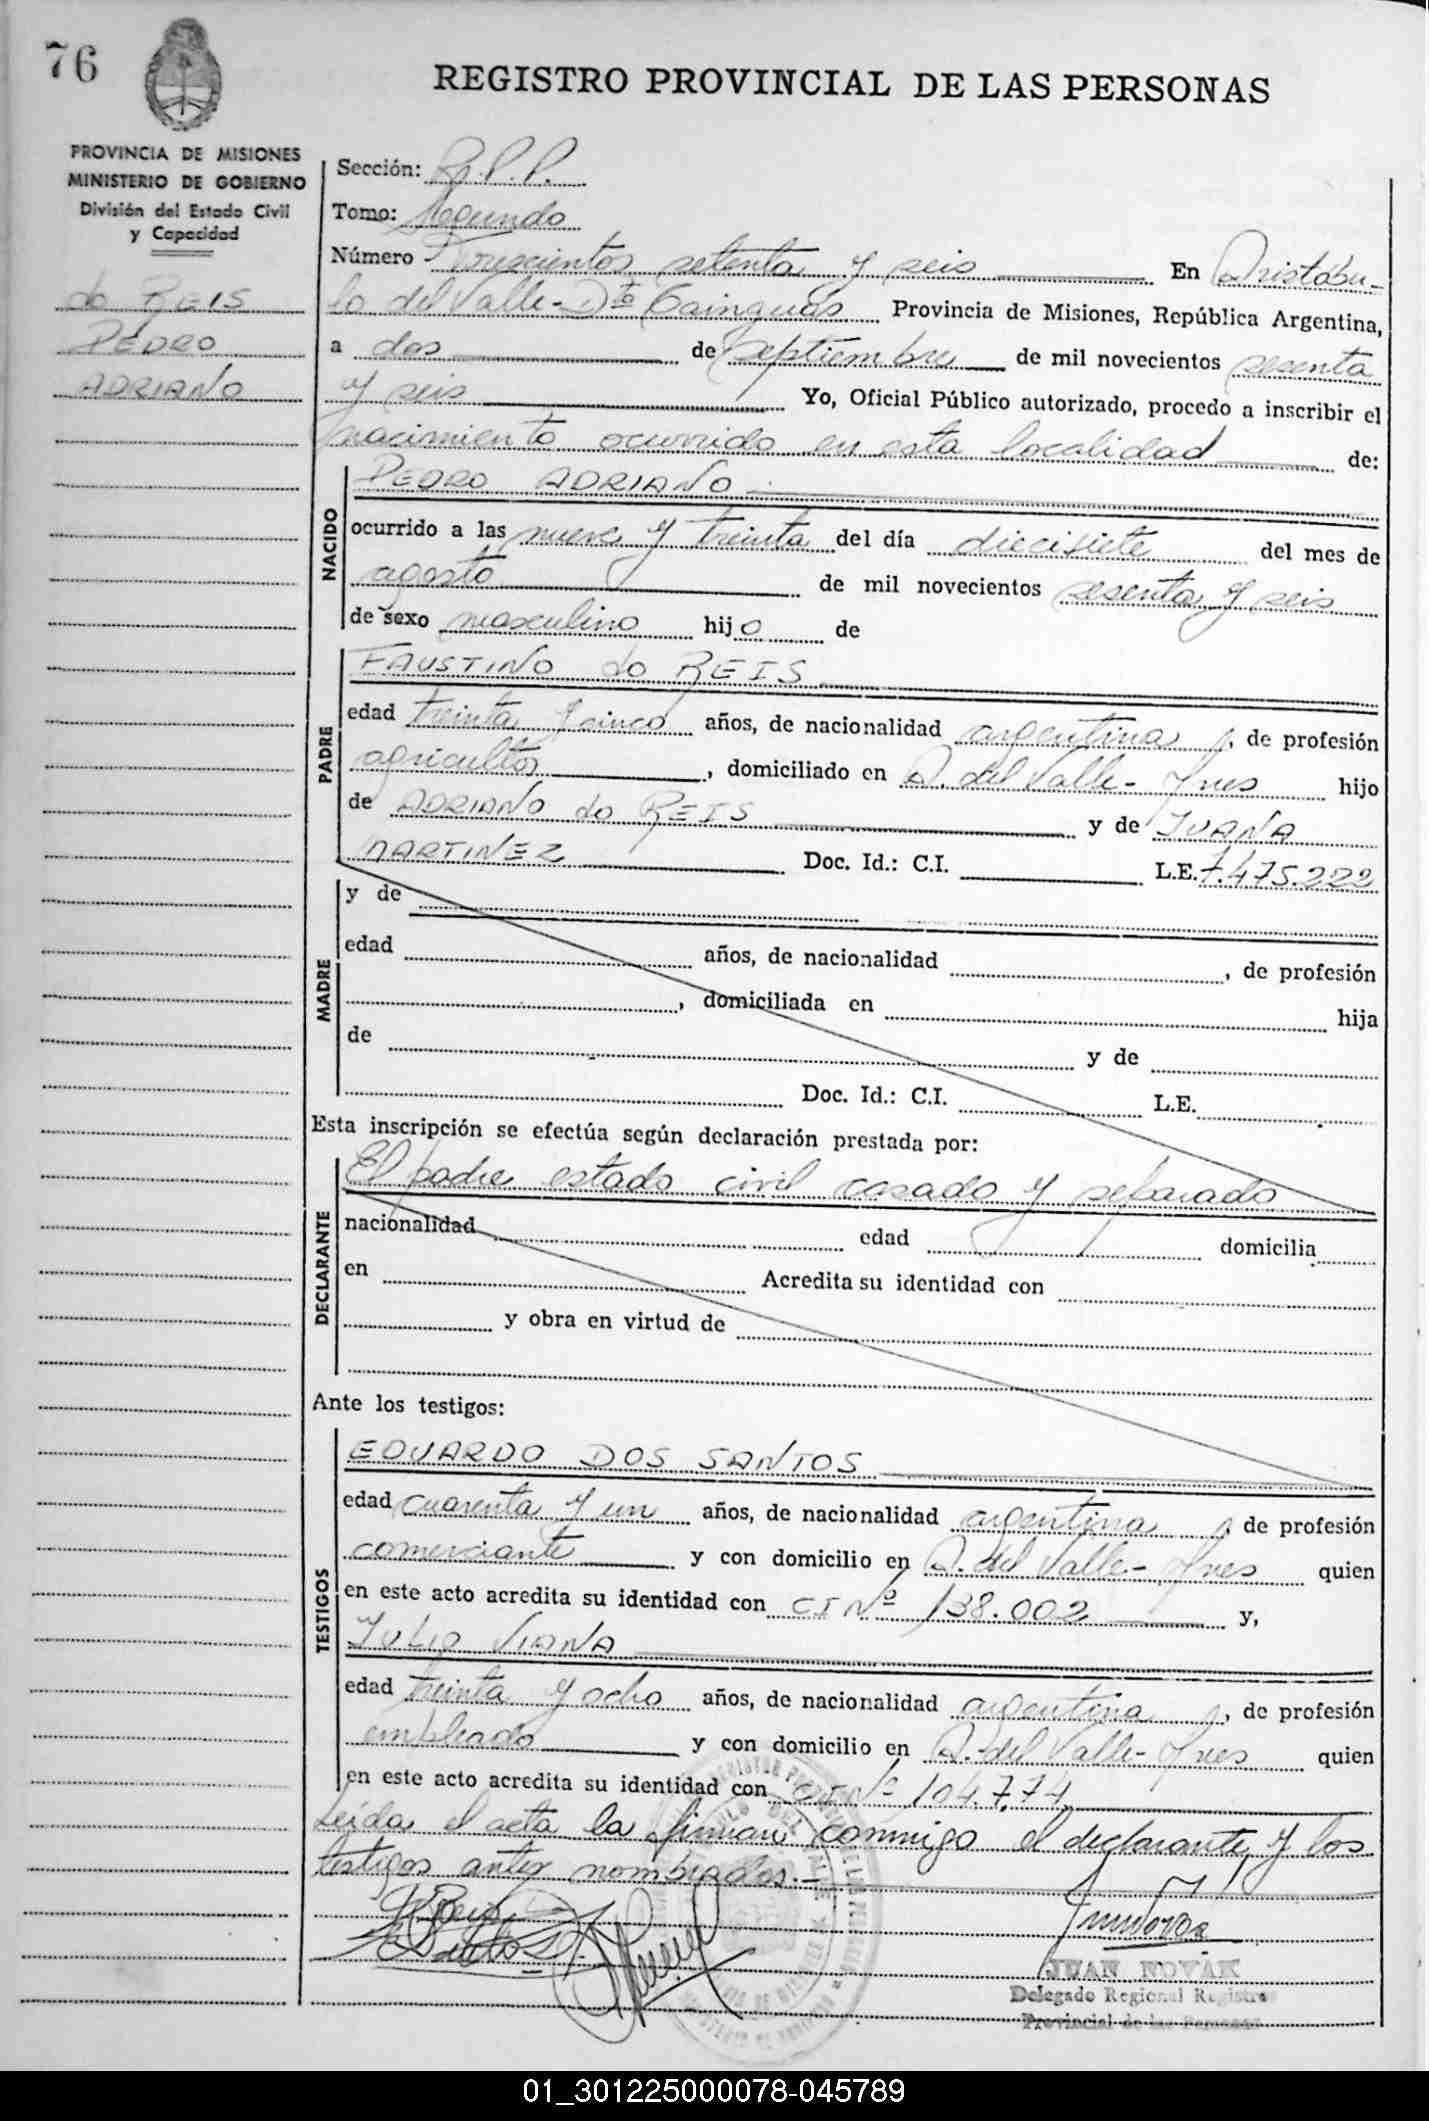 76
REGISTRO PROVINCIAL DE LAS PERSONAS
PROVINCIA DE MISIONES
MINISTERIO DE GOBIERNO
División del Estado Civil
y Capacidad
do REIS
PEDRO
ADRIANO
Sección: R.P.P.
Tomo: Segundo
Número Trescientos setenta y seis En Aristóbu-
lo del Valle - Dto Cainguas Provincia de Misiones, República Argentina,
a dos de septiembre de mil novecientos sesenta
y seis Yo, Oficial Público autorizado, procedo a inscribir el
nacimiento ocurrido en esta localidad de:
NACIDO
PEDRO ADRIANO
ocurrido a las nueve y treinta del día diecisiete del mes de
agosto de mil novecientos sesenta y seis
de sexo masculino hijo de
PADRE
FAUSTINO do REIS
edad treinta y cinco años, de nacionalidad argentina, de profesión
agricultor, domiciliado en A. del Valle - Mnes hijo
de ADRIANO do REIS y de JUANA
MARTINEZ Doc. Id.: C.I. L.E. 7.475.222
MADRE
y de
edad años, de nacionalidad , de profesión
, domiciliada en hija
de y de
Doc. Id.: C.I. L.E.
Esta inscripción se efectúa según declaración prestada por:
DECLARANTE
El padre estado civil casado y separado
nacionalidad edad domicilia
en Acredita su identidad con
y obra en virtud de
Ante los testigos:
TESTIGOS
EDUARDO DOS SANTOS
edad cuarenta y un años, de nacionalidad argentina, de profesión
comerciante y con domicilio en A. del Valle - Mnes quien
en este acto acredita su identidad con CI Nº 138.002 y,
JULIO VIANA
edad treinta y ocho años, de nacionalidad argentina, de profesión
empleado y con domicilio en A. del Valle - Mnes quien
en este acto acredita su identidad con CI Nº 104.774
Leída el acta la firman conmigo el declarante y los
testigos antes nombrados.-
JUAN NOVAK
Delegado Regional Registro
Provincial de las Personas
01_301225000078-045789